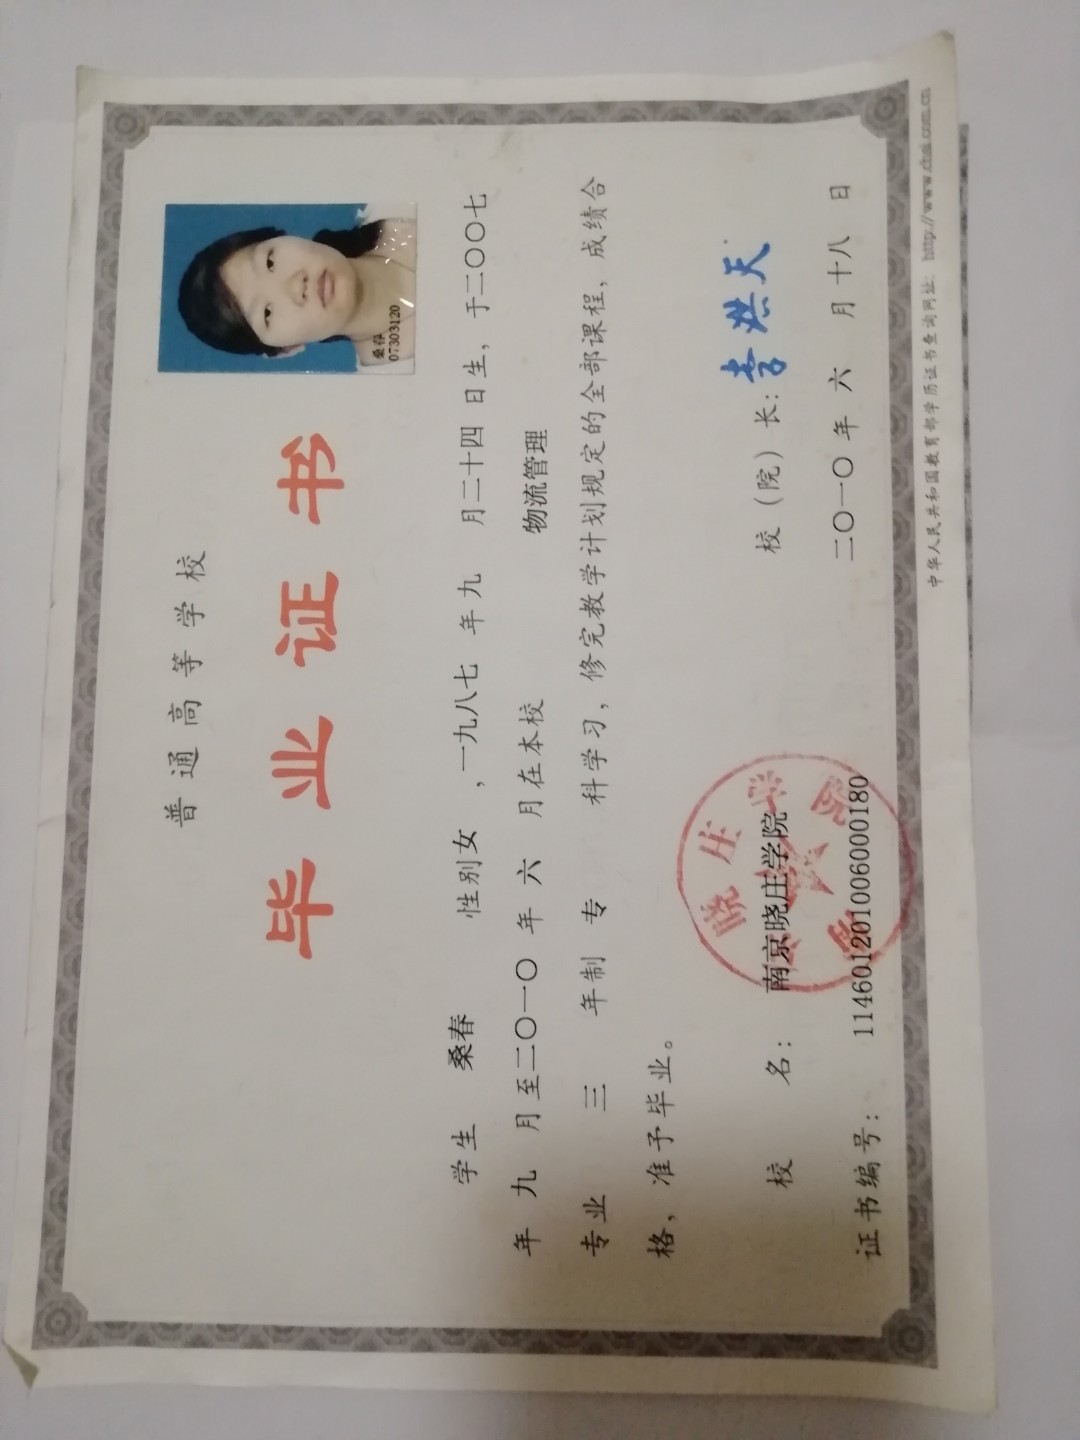 普通高等学校
毕业证书
桑春
07303120
学生 桑春 性别女 ,一九八七 年九 月二十四 日生，于二〇〇七
年 九 月至二〇一〇 年 六 月在本校 物流管理
专业 三 年制 专 科学习，修完教学计划规定的全部课程，成绩合
格，准予毕业。
校 名： 南京晓庄学院
校（院）长：
证书编号： 114601201006000180
二〇一〇 年 六 月 十八 日
中华人民共和国教育部学历证书查询网址: http://www.chsi.com.cn